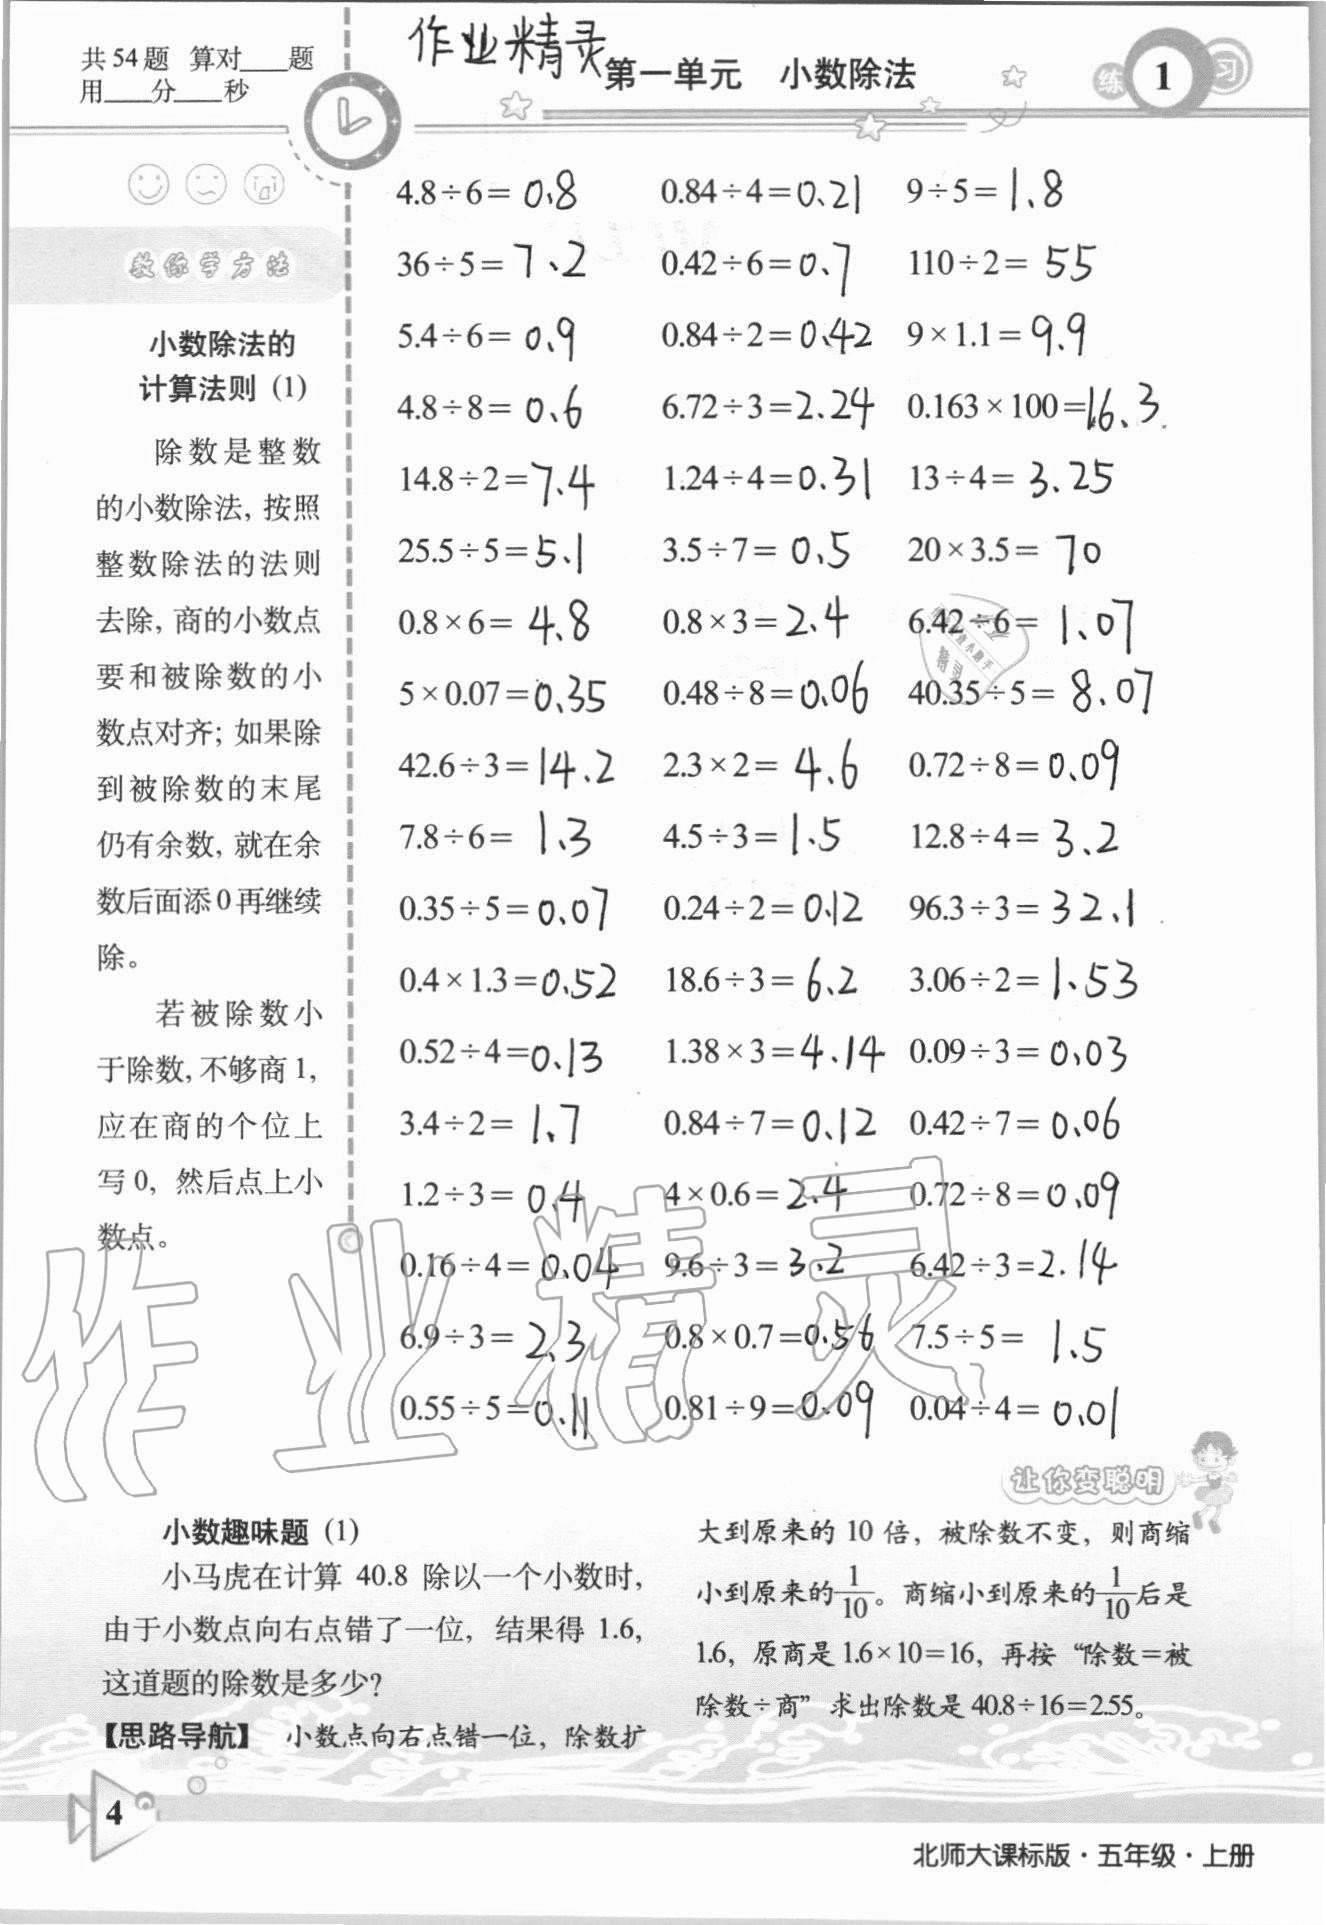 共54题 算对____题
用____分____秒
作业精灵
第一单元 小数除法
练 1 习
教你学方法
小数除法的
计算法则 (1)
除数是整数
的小数除法, 按照
整数除法的法则
去除, 商的小数点
要和被除数的小
数点对齐; 如果除
到被除数的末尾
仍有余数, 就在余
数后面添0再继续
除。
若被除数小
于除数, 不够商1,
应在商的个位上
写0, 然后点上小
数点。
4.8÷6=0.8 0.84÷4=0.21 9÷5=1.8
36÷5=7.2 0.42÷6=0.7 110÷2=55
5.4÷6=0.9 0.84÷2=0.42 9×1.1=9.9
4.8÷8=0.6 6.72÷3=2.24 0.163×100=16.3
14.8÷2=7.4 1.24÷4=0.31 13÷4=3.25
25.5÷5=5.1 3.5÷7=0.5 20×3.5=70
0.8×6=4.8 0.8×3=2.4 6.42÷6=1.07
5×0.07=0.35 0.48÷8=0.06 40.35÷5=8.07
42.6÷3=14.2 2.3×2=4.6 0.72÷8=0.09
7.8÷6=1.3 4.5÷3=1.5 12.8÷4=3.2
0.35÷5=0.07 0.24÷2=0.12 96.3÷3=32.1
0.4×1.3=0.52 18.6÷3=6.2 3.06÷2=1.53
0.52÷4=0.13 1.38×3=4.14 0.09÷3=0.03
3.4÷2=1.7 0.84÷7=0.12 0.42÷7=0.06
1.2÷3=0.4 4×0.6=2.4 0.72÷8=0.09
0.16÷4=0.04 9.6÷3=3.2 6.42÷3=2.14
6.9÷3=2.3 0.8×0.7=0.56 7.5÷5=1.5
0.55÷5=0.11 0.81÷9=0.09 0.04÷4=0.01
作业精灵
让你变聪明
小数趣味题 (1)
小马虎在计算 40.8 除以一个小数时,
由于小数点向右点错了一位, 结果得 1.6,
这道题的除数是多少?
【思路导航】 小数点向右点错一位, 除数扩
大到原来的 10 倍, 被除数不变, 则商缩
小到原来的1/10。商缩小到原来的1/10后是
1.6, 原商是 1.6×10=16, 再按 “除数=被
除数÷商” 求出除数是 40.8÷16=2.55。
4
北师大课标版·五年级·上册